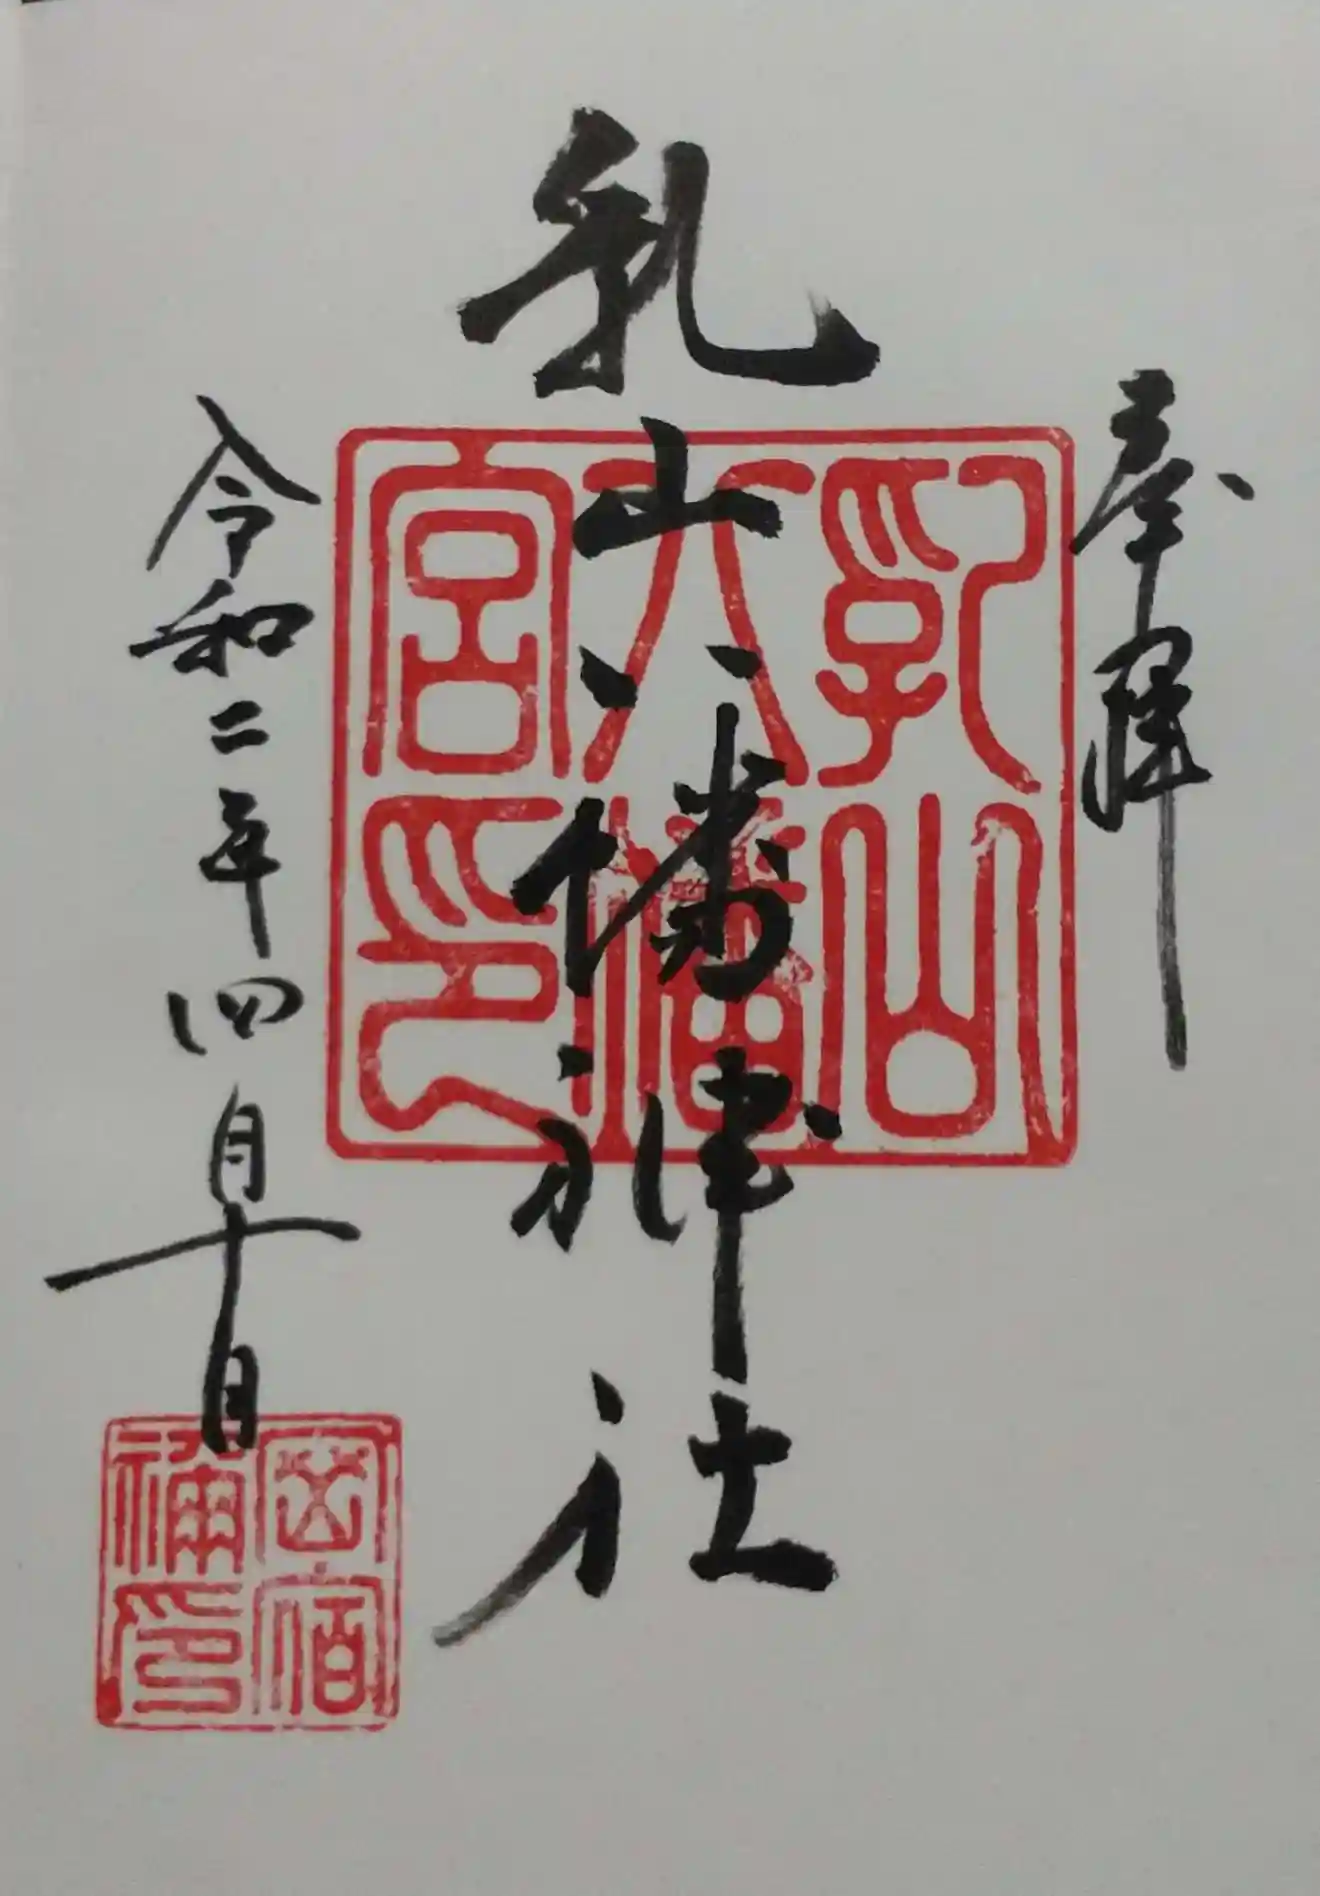 奉拝
乳山八幡神社
乳山八幡宮印
令和二年四月十日
宮宿禰印